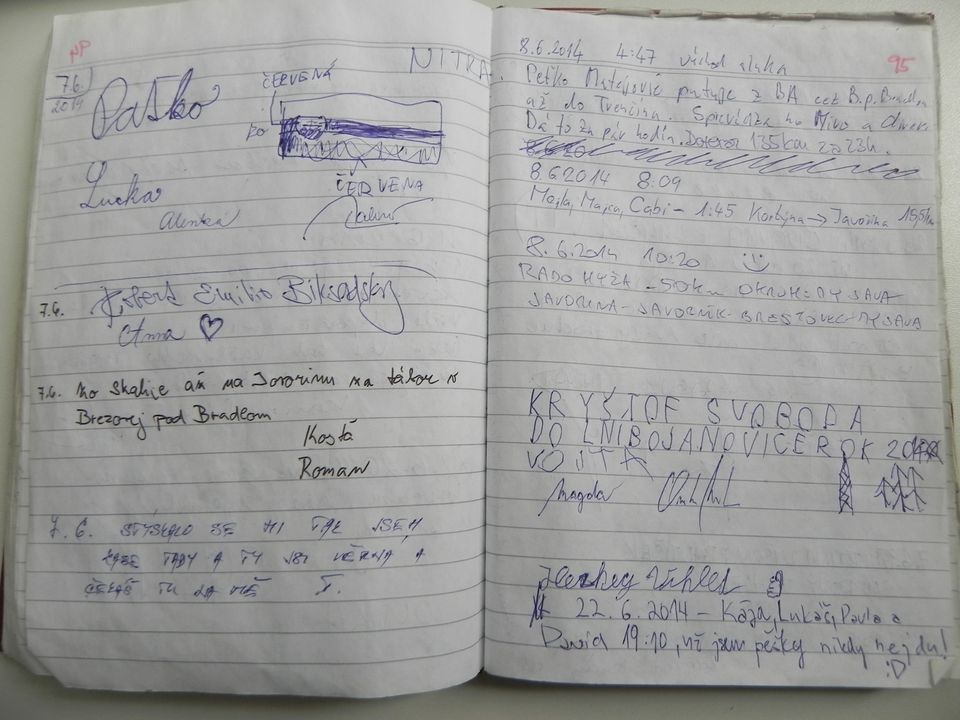 NP
7.6.
2014
Paťko
NITRA
ČERVENÁ
ČERVENA
Lucka
Alenka
7.6.
Emilio
Anna ♡
7.6. Zo Skalice až na Javorinu na tábor v
Brezovej pod Bradlom
Kostă
Roman
7. 6. STÝSKALO SE MI TAK JSEM
ZASE TADY A TY JSI VĚRNÁ A
ČEKÁŠ TU NA MĚ
95
8.6.2014 4:47 východ slnka
Peťko putuje z BA cez B.p. Bradlom
až do Trenčína. ho Mivo a
Dá to za pár hodín. Doteraz 135km za 23h.
8.6.2014 8:09
Majka, Gabi – 1:45 → Javorina 15,5km
8.6.2014 10:20
RADO HYŽA – 50km OKRUH: MYJAVA
JAVORINA - JAVORNÍK - BRESTOVEC - MYJAVA
KRYŠTOF SVOBODA
DOLNI BOJANOVICE ROK 201
VOJTA
Magda
22.6.2014 – Kája, Lukáš, Pavla a
David 19:10, už jsem pěšky nikdy nejdu!
:D